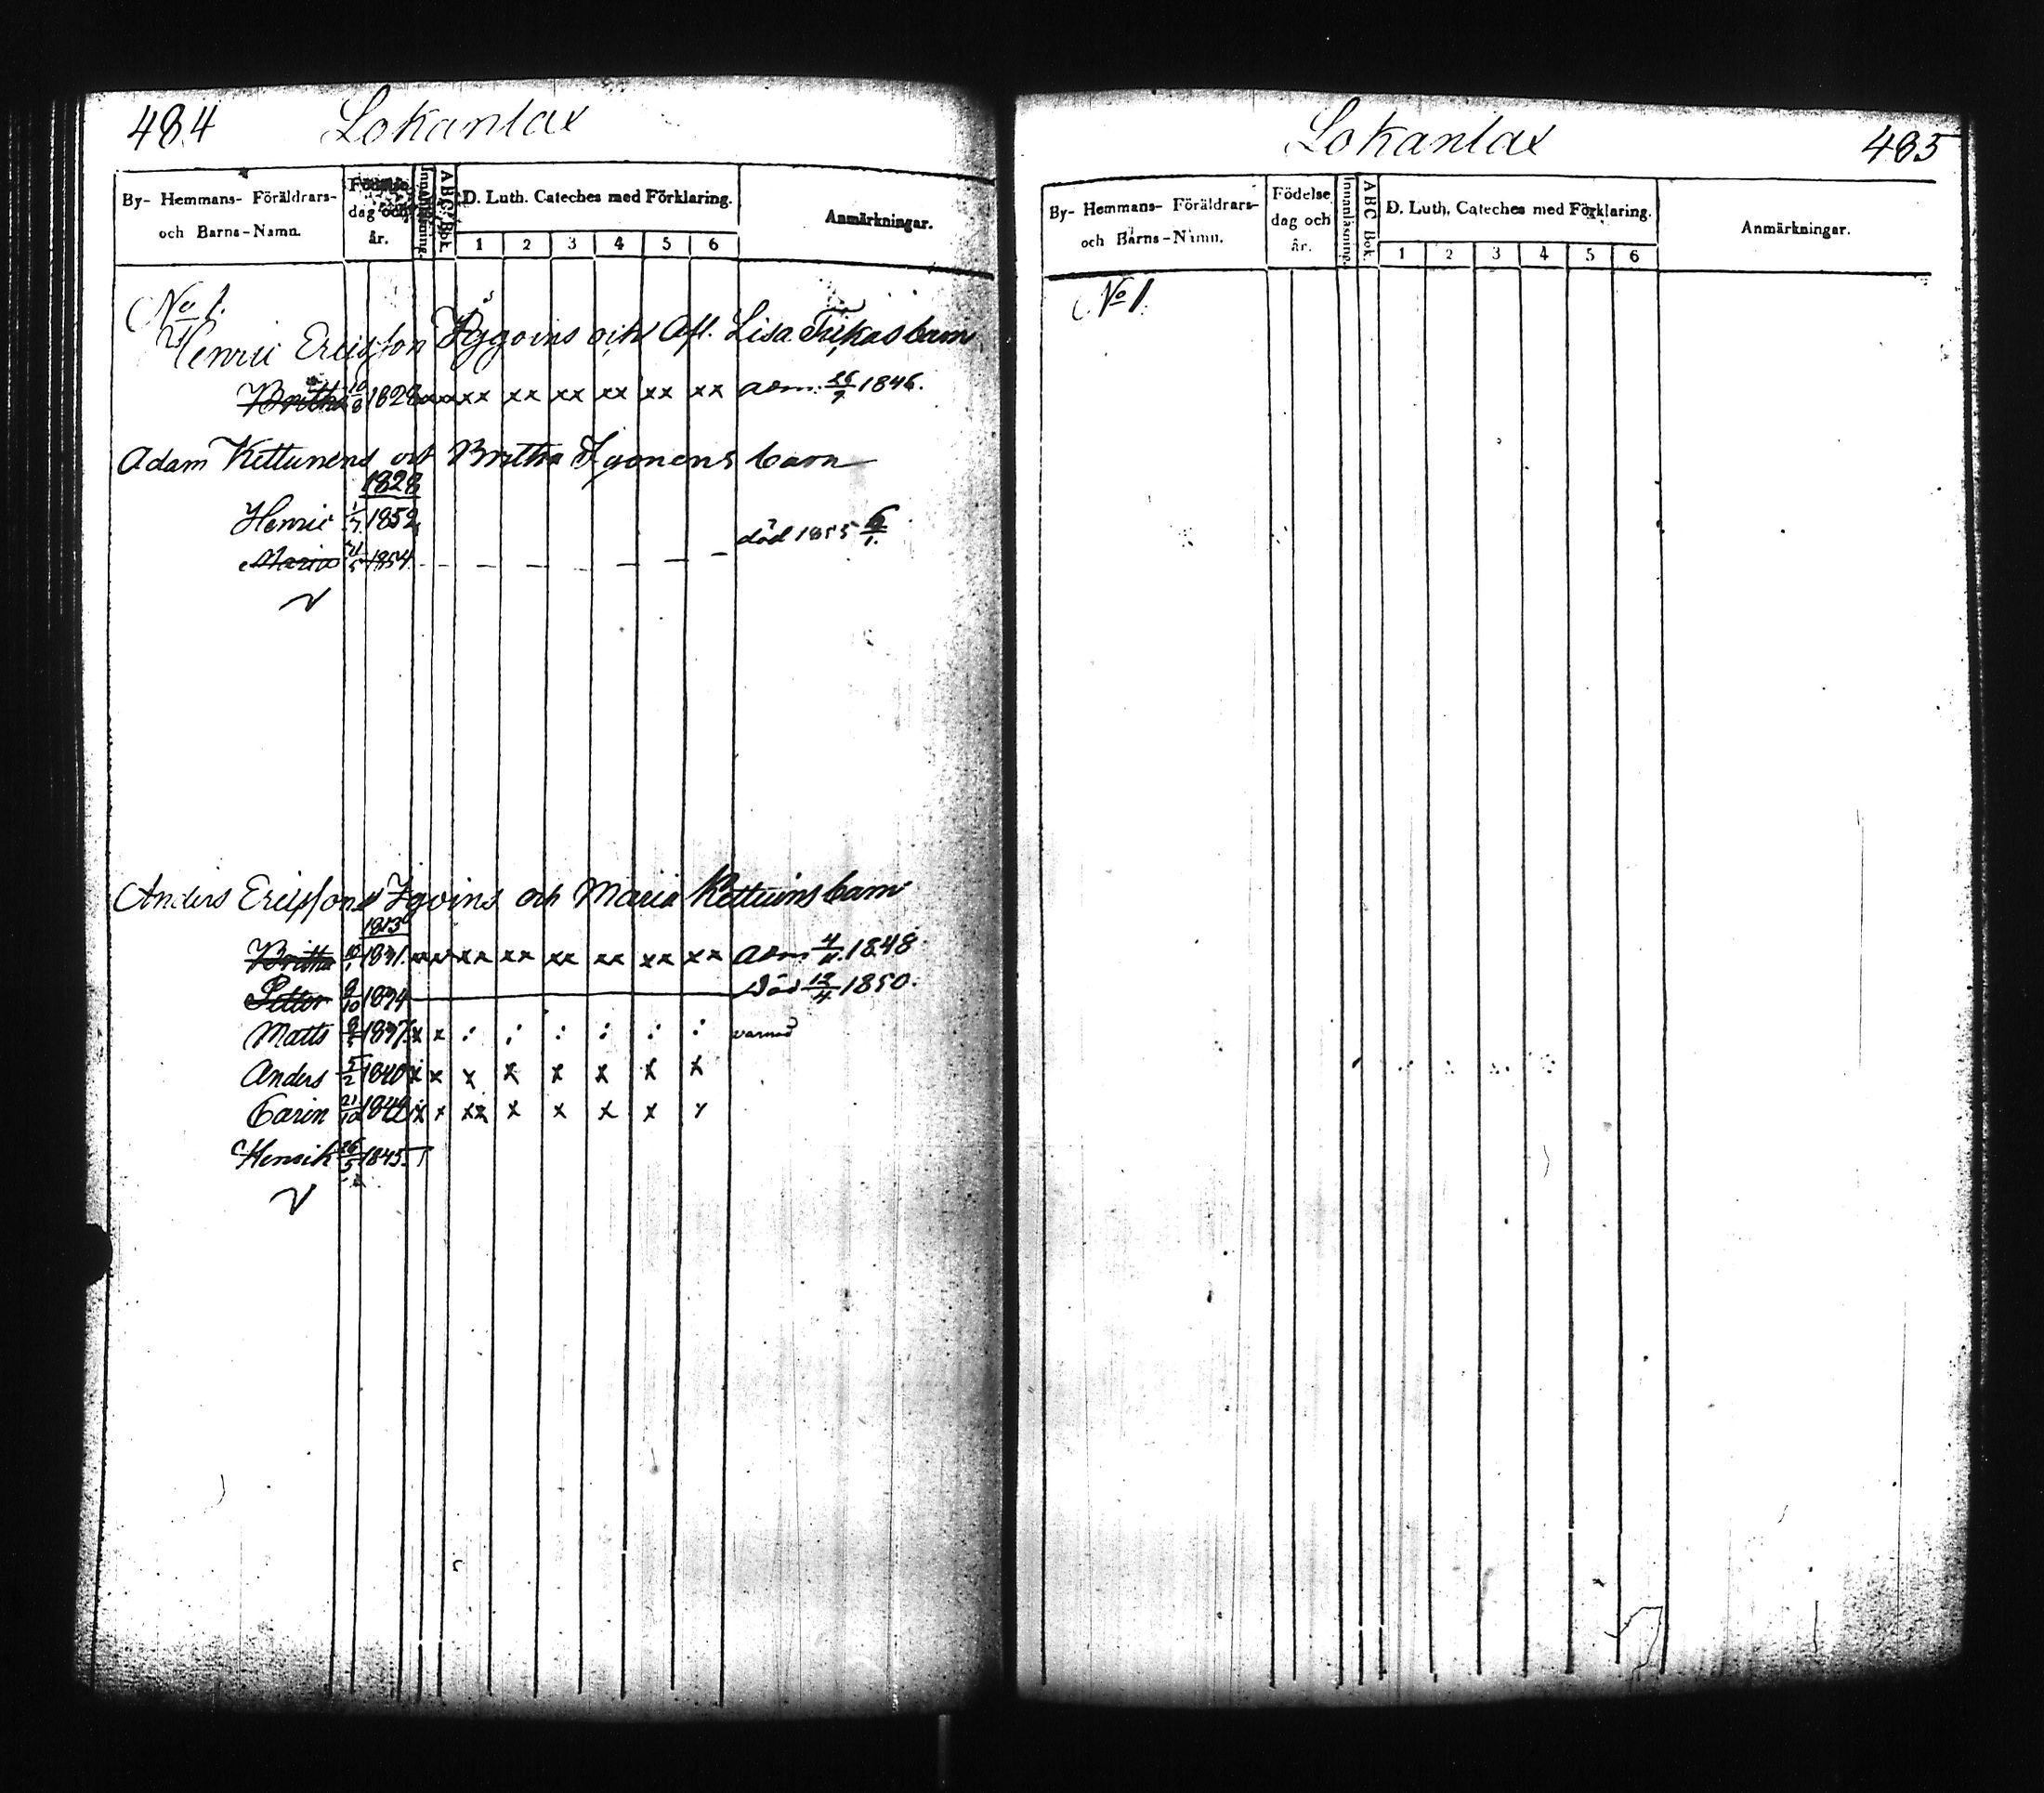 484 Lokanlax
By- Hemmans- Föräldrars- och Barns-Namn. Födelse dag och år. Innanläsning. ABC Bok. D. Luth. Cateches med Förklaring. Anmärkningar.
1 2 3 4 5 6
No 1.
Henric Ericsson och Afl. Lisa barn
Britha 10/8 1828 xx xx xx xx xx xx xx xx adm. 26/9 1846.
Adam Kettunens och Britha barn
1828
Henric 1/7 1852
Maria 1854 död 1855 6/1.
Anders Ericssons och Maria barn
1813
Britha 1831. xx xx xx xx xx xx xx xx adm 4/11. 1848.
Petter 9/10 1834 Död 12/4 1850.
Matts 1837. x x : : : : : : varnad
Anders 5/2 1840 x x x x x x x x
Carin 21/10 x x xx x x x x x
Henrik 26/5 1845.
Lokanlax 485
By- Hemmans- Föräldrars- och Barns-Namn. Födelse dag och år. Innanläsning. ABC Bok. D. Luth. Cateches med Förklaring. Anmärkningar.
1 2 3 4 5 6
No 1.